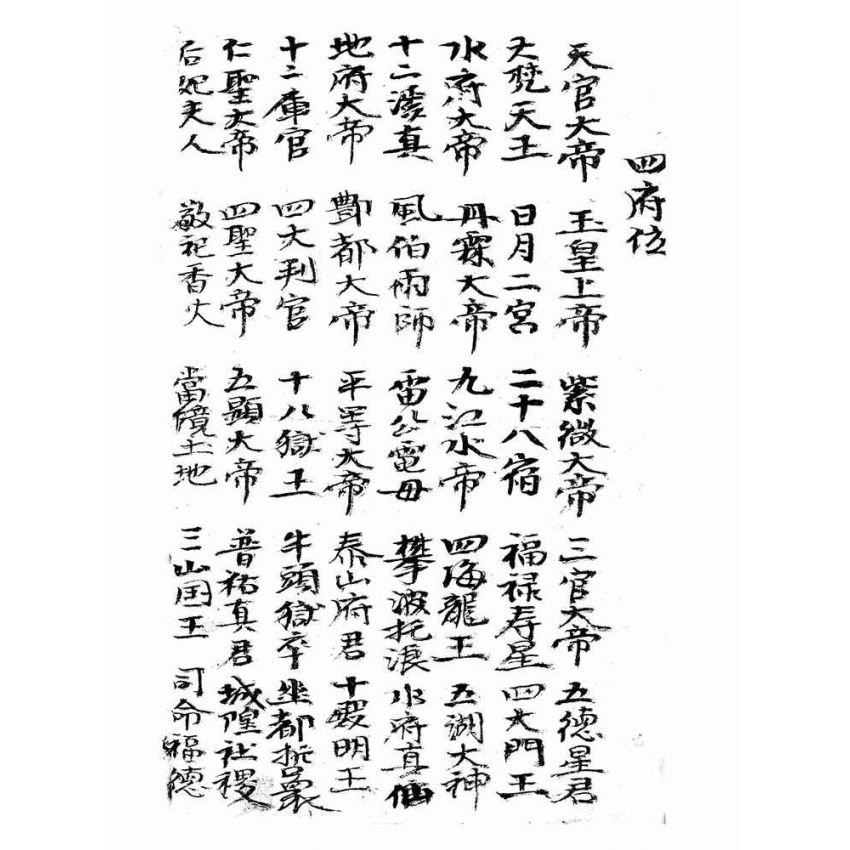 四府位
天官大帝 玉皇上帝 紫微大帝 三官大帝 五德星君
大梵天王 日月二宮 二十八宿 福禄寿星 四大門王
水府大帝 丹霖大帝 九江水帝 四海龍王 五湖大神
十二溪真 風伯雨師 雷公電母 攀波托浪 水府真仙
地府大帝 酆都大帝 平等大帝 泰山府君 十殿明王
十二庫官 四大判官 十八獄王 牛頭獄卒 坐都
仁聖大帝 四聖大帝 五顯大帝 普祐真君 城隍社稷
后妃夫人 敬祀香火 當境土地 三山国王 司命福德